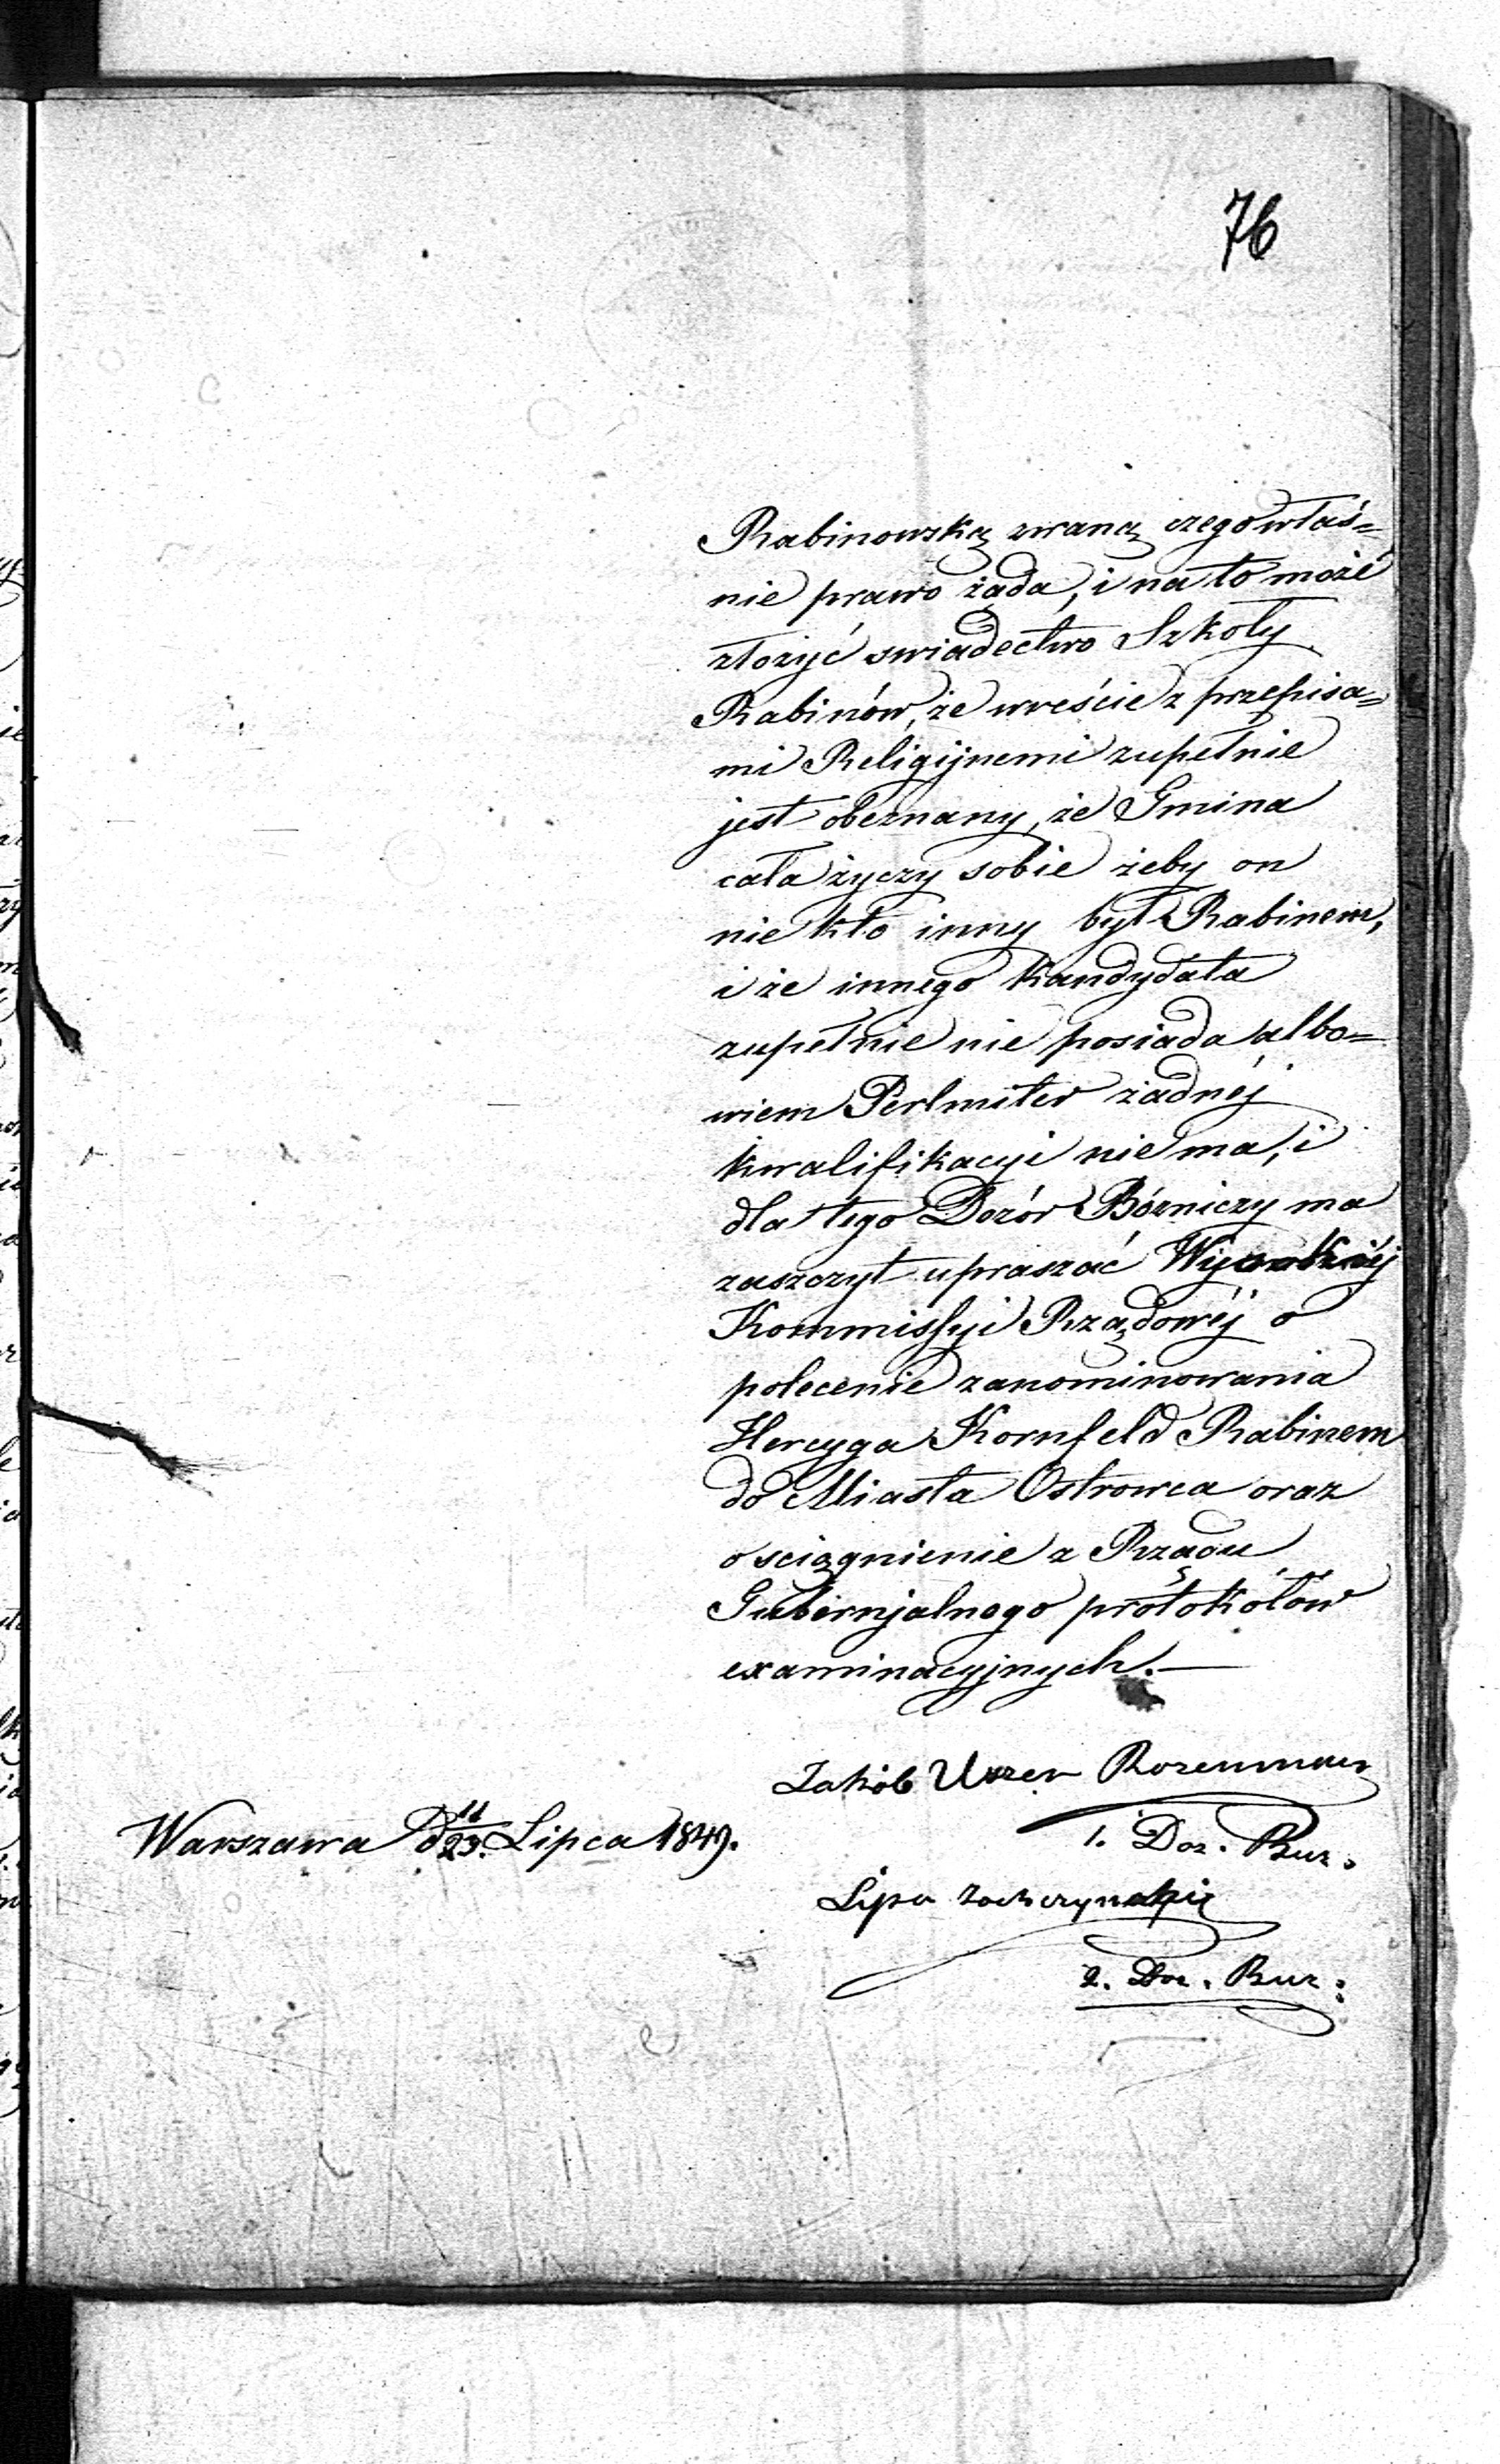 76
Rabinowską zwaną czego właś=
nie prawo żąda, i na to może
złożyć swiadectwo Szkoły
Rabinów, że wreście z przepisa=
mi Religijnemi zupełnie
jest obeznany, że Gmina
cała życzy sobie żeby on
nie kto inny był Rabinem,
i że innego Kandydata
zupełnie nie posiada albo=
wiem Perlmiter żadnéj
kwalifikacyi nie ma, i
dla tego Dozór Bózniczy ma
zaszczyt upraszać Wysokiéj
Kommissyi Rządowéj o
polecenie zanominowania
Hercyga Kornfeld Rabinem
do Miasta Ostrowca oraz
o sciągnienie z Rządu
Gubernjalnego protokółów
examinacyjnych.—
Jakób Uszer Rozenman
1. Doz. Buz.
Warszawa d 11/23. Lipca 1849.
Lipa
2. Doz. Buz: